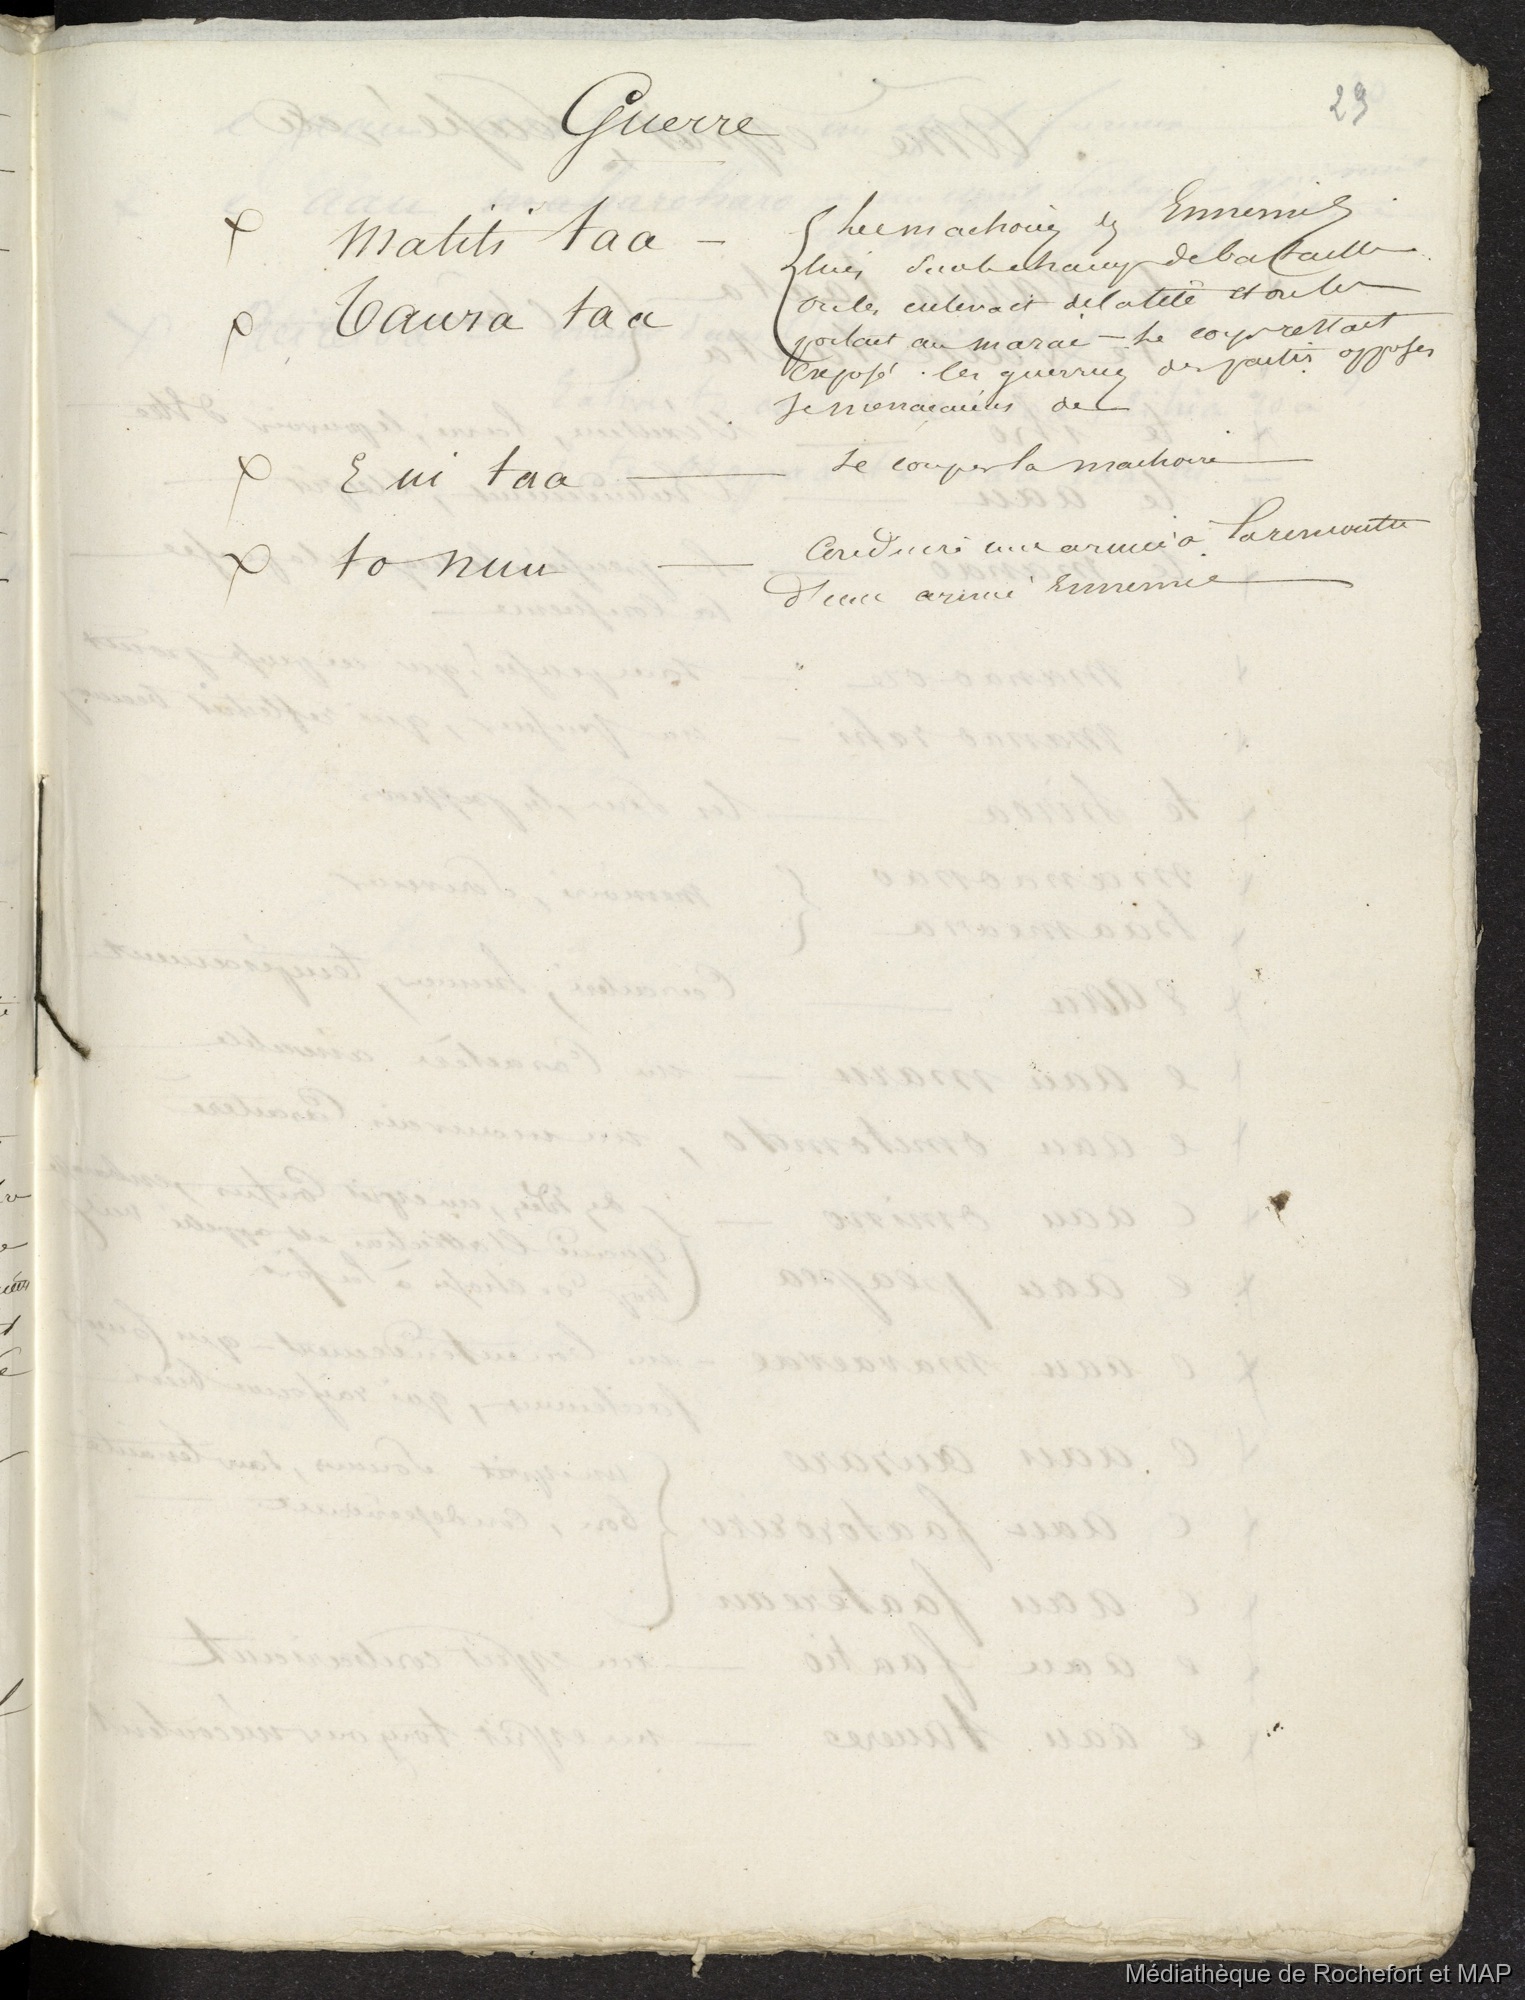 29
Guerre
x matiti taa – { les machoires des Ennemis
tués sur le champ de bataille
x Taura taa
on les enlevait de la tête et on les
portait au marae – le corps restait
exposé. les guerriers des partis opposés
se menaçaient de
x E ui taa — se couper la machoire —
x to nuu — Conduire une armée à la rencontre
d'une armée Ennemie —
Médiathèque de Rochefort et MAP